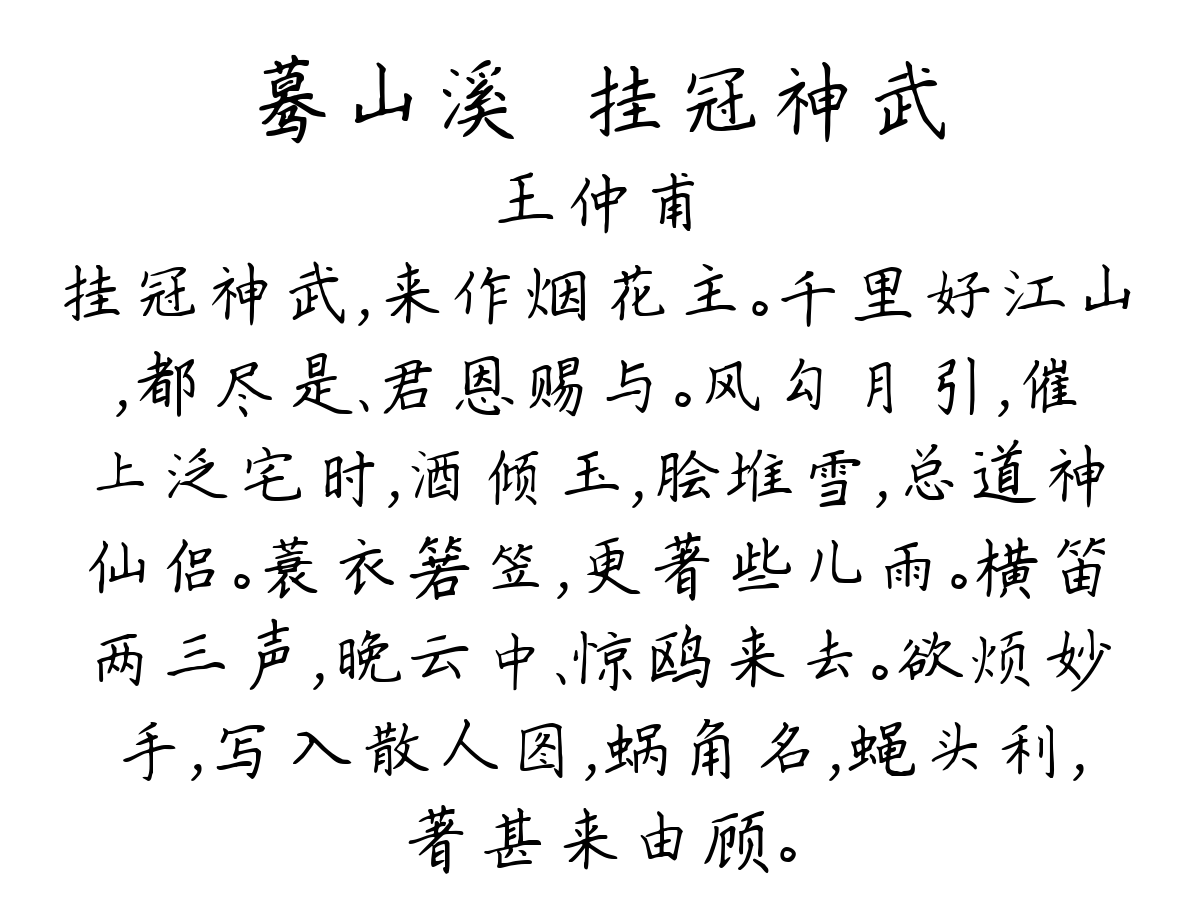 蓦山溪 挂冠神武
王仲甫
挂冠神武,来作烟花主。千里好江山
,都尽是、君恩赐与。风勾月引,催
上泛宅时,酒倾玉,脍堆雪,总道神
仙侣。蓑衣箬笠,更著些儿雨。横笛
两三声,晚云中、惊鸥来去。欲烦妙
手,写入散人图,蜗角名,蝇头利,
著甚来由顾。